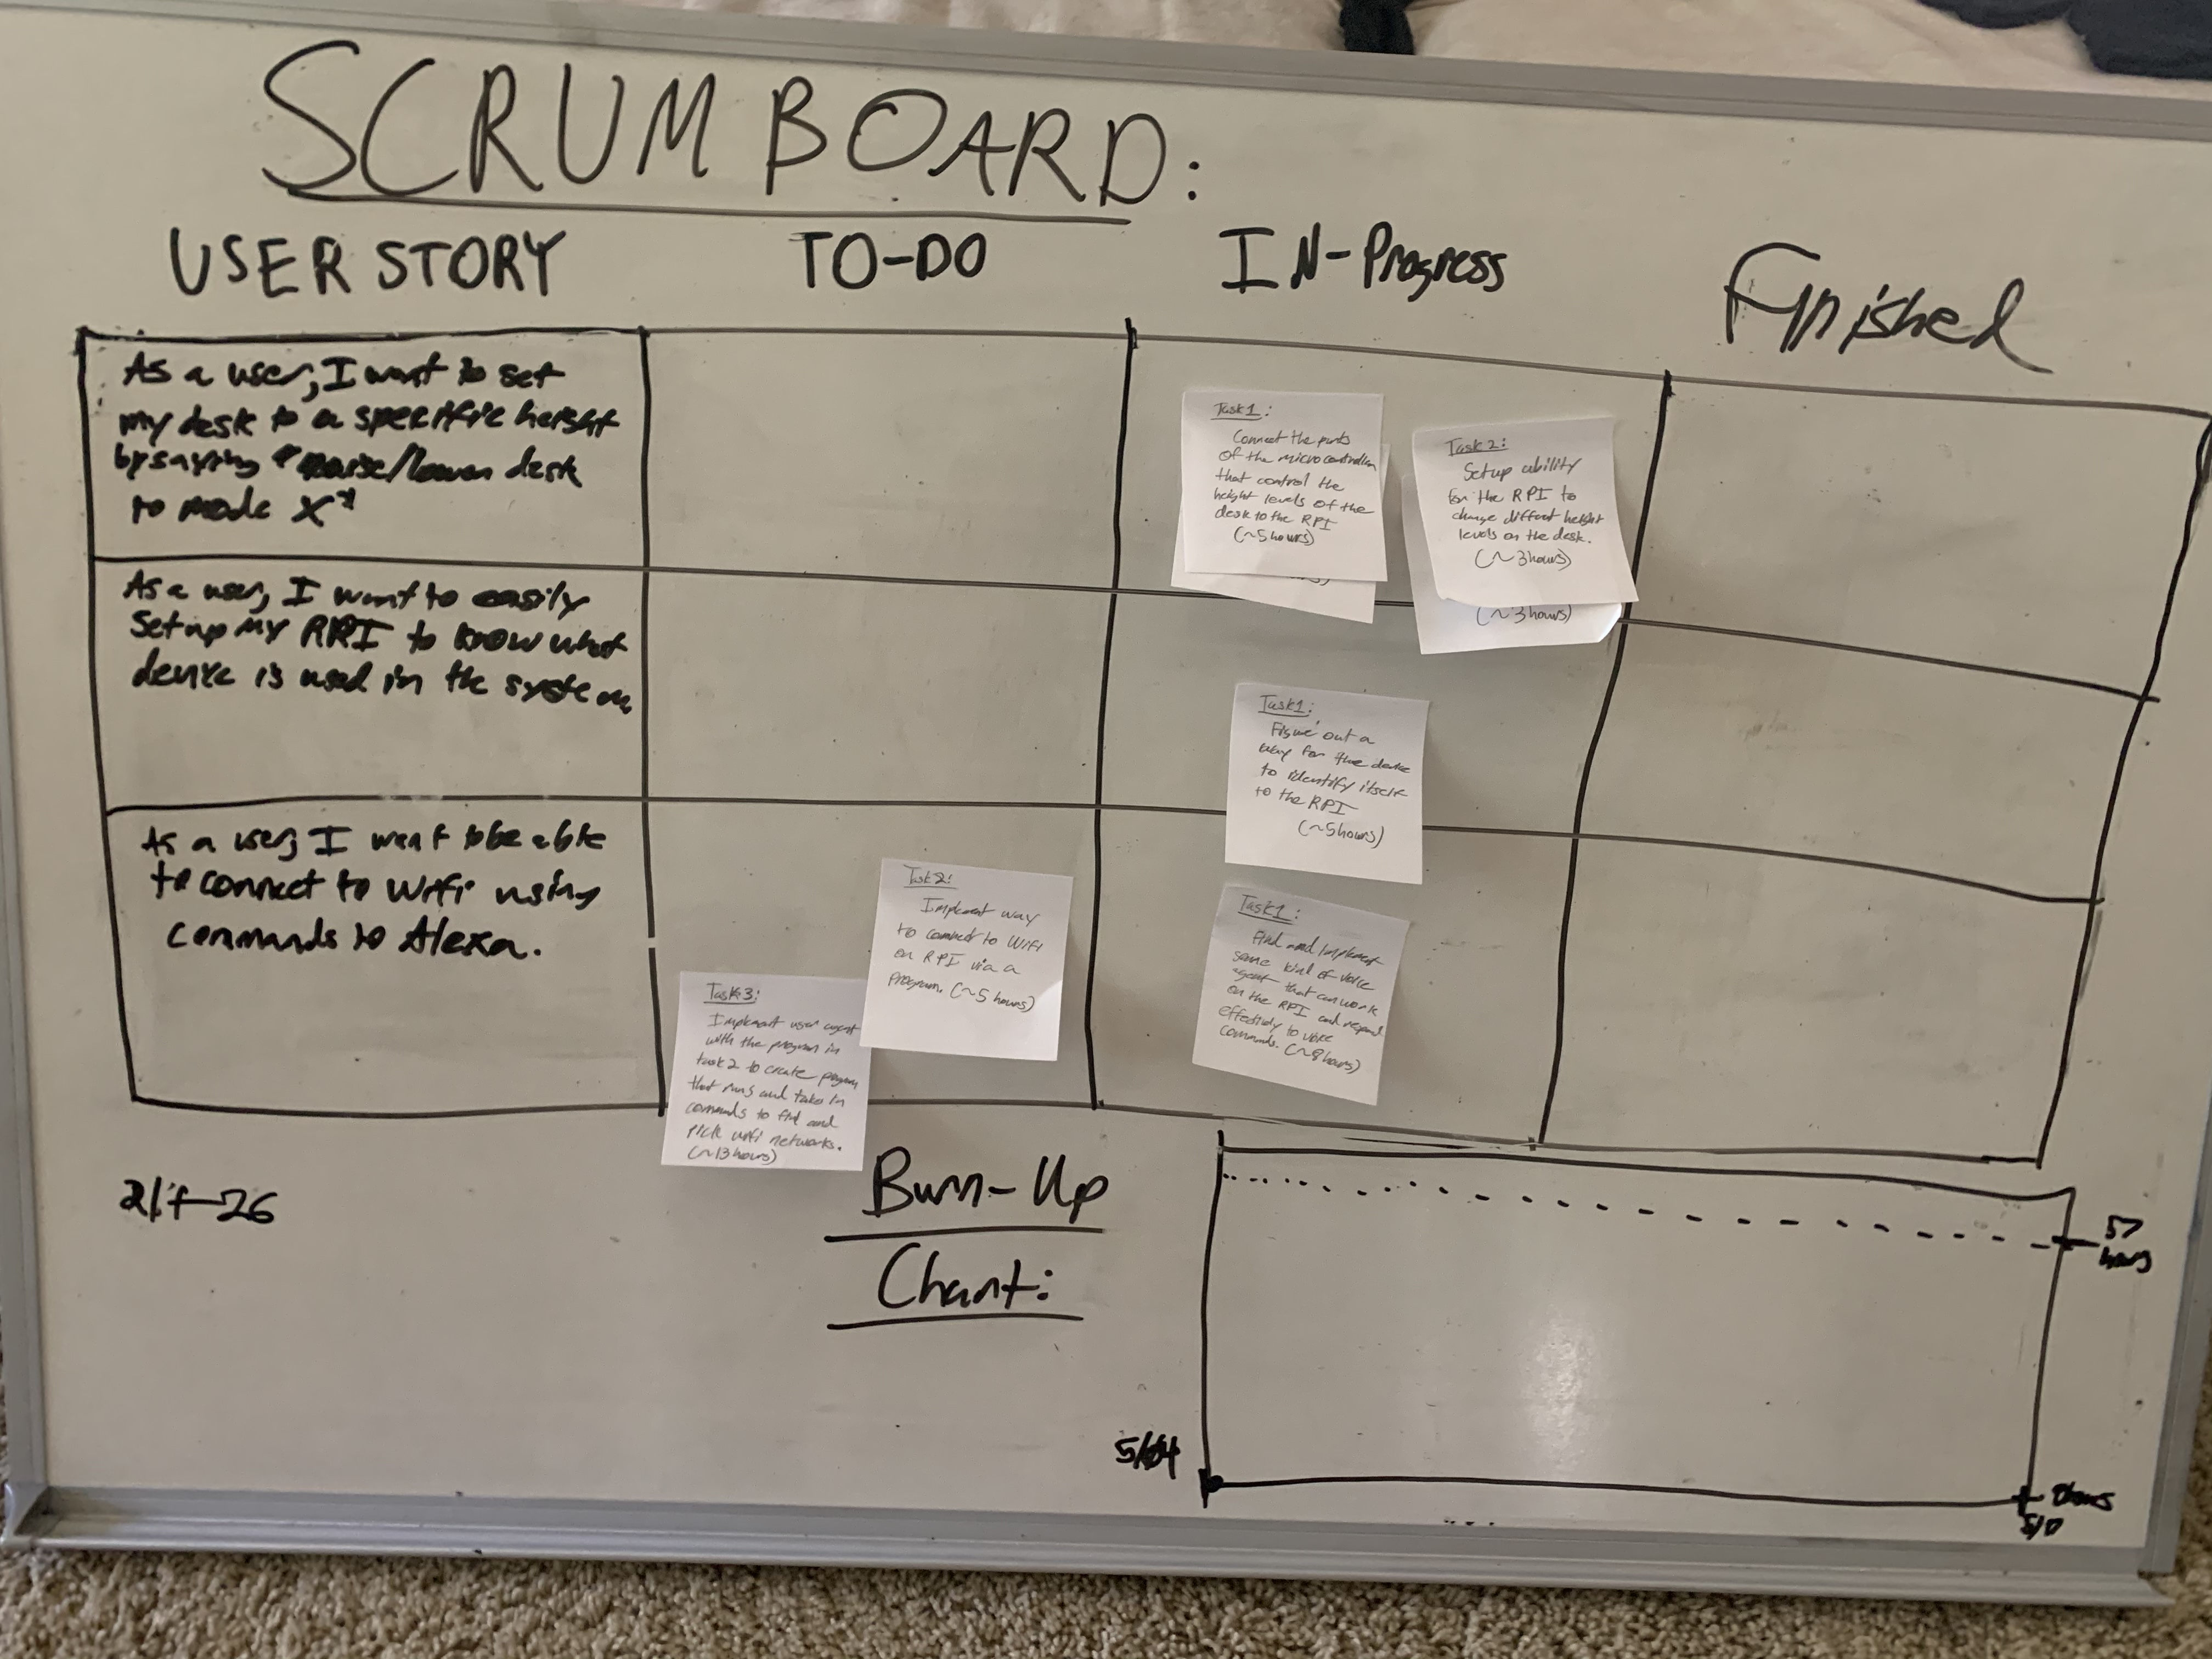 SCRUM BOARD:
USER STORY
TO-DO
IN-Progress
Finished
As a user, I want to set
my desk to a specific height
by saying "raise/lower desk
to mode X"
Task 1:
Connect the ports
of the microcontroller
that control the
height levels of the
desk to the RPI
(~5 hours)
Task 2:
Setup ability
for the RPI to
change diffent height
levels on the desk.
(~3hours)
(~3hours)
As a user, I want to easily
setup my RPI to know what
device is used in the system.
Task 1:
Figure out a
way for the device
to identify itself
to the RPI
(~5hours)
As a user, I want to be able
to connect to Wifi using
commands to Alexa.
Task 3:
Implement user agent
with the program in
task 2 to create program
that runs and takes in
commands to find and
pick wifi networks.
(~13hours)
Task 2:
Implement way
to connect to Wifi
on RPI via a
program. (~5 hours)
Task 1:
Find and implement
some kind of voice
agent that can work
on the RPI and respond
effectively to voice
commands. (~8hours)
Burn-Up
Chart:
57
hours